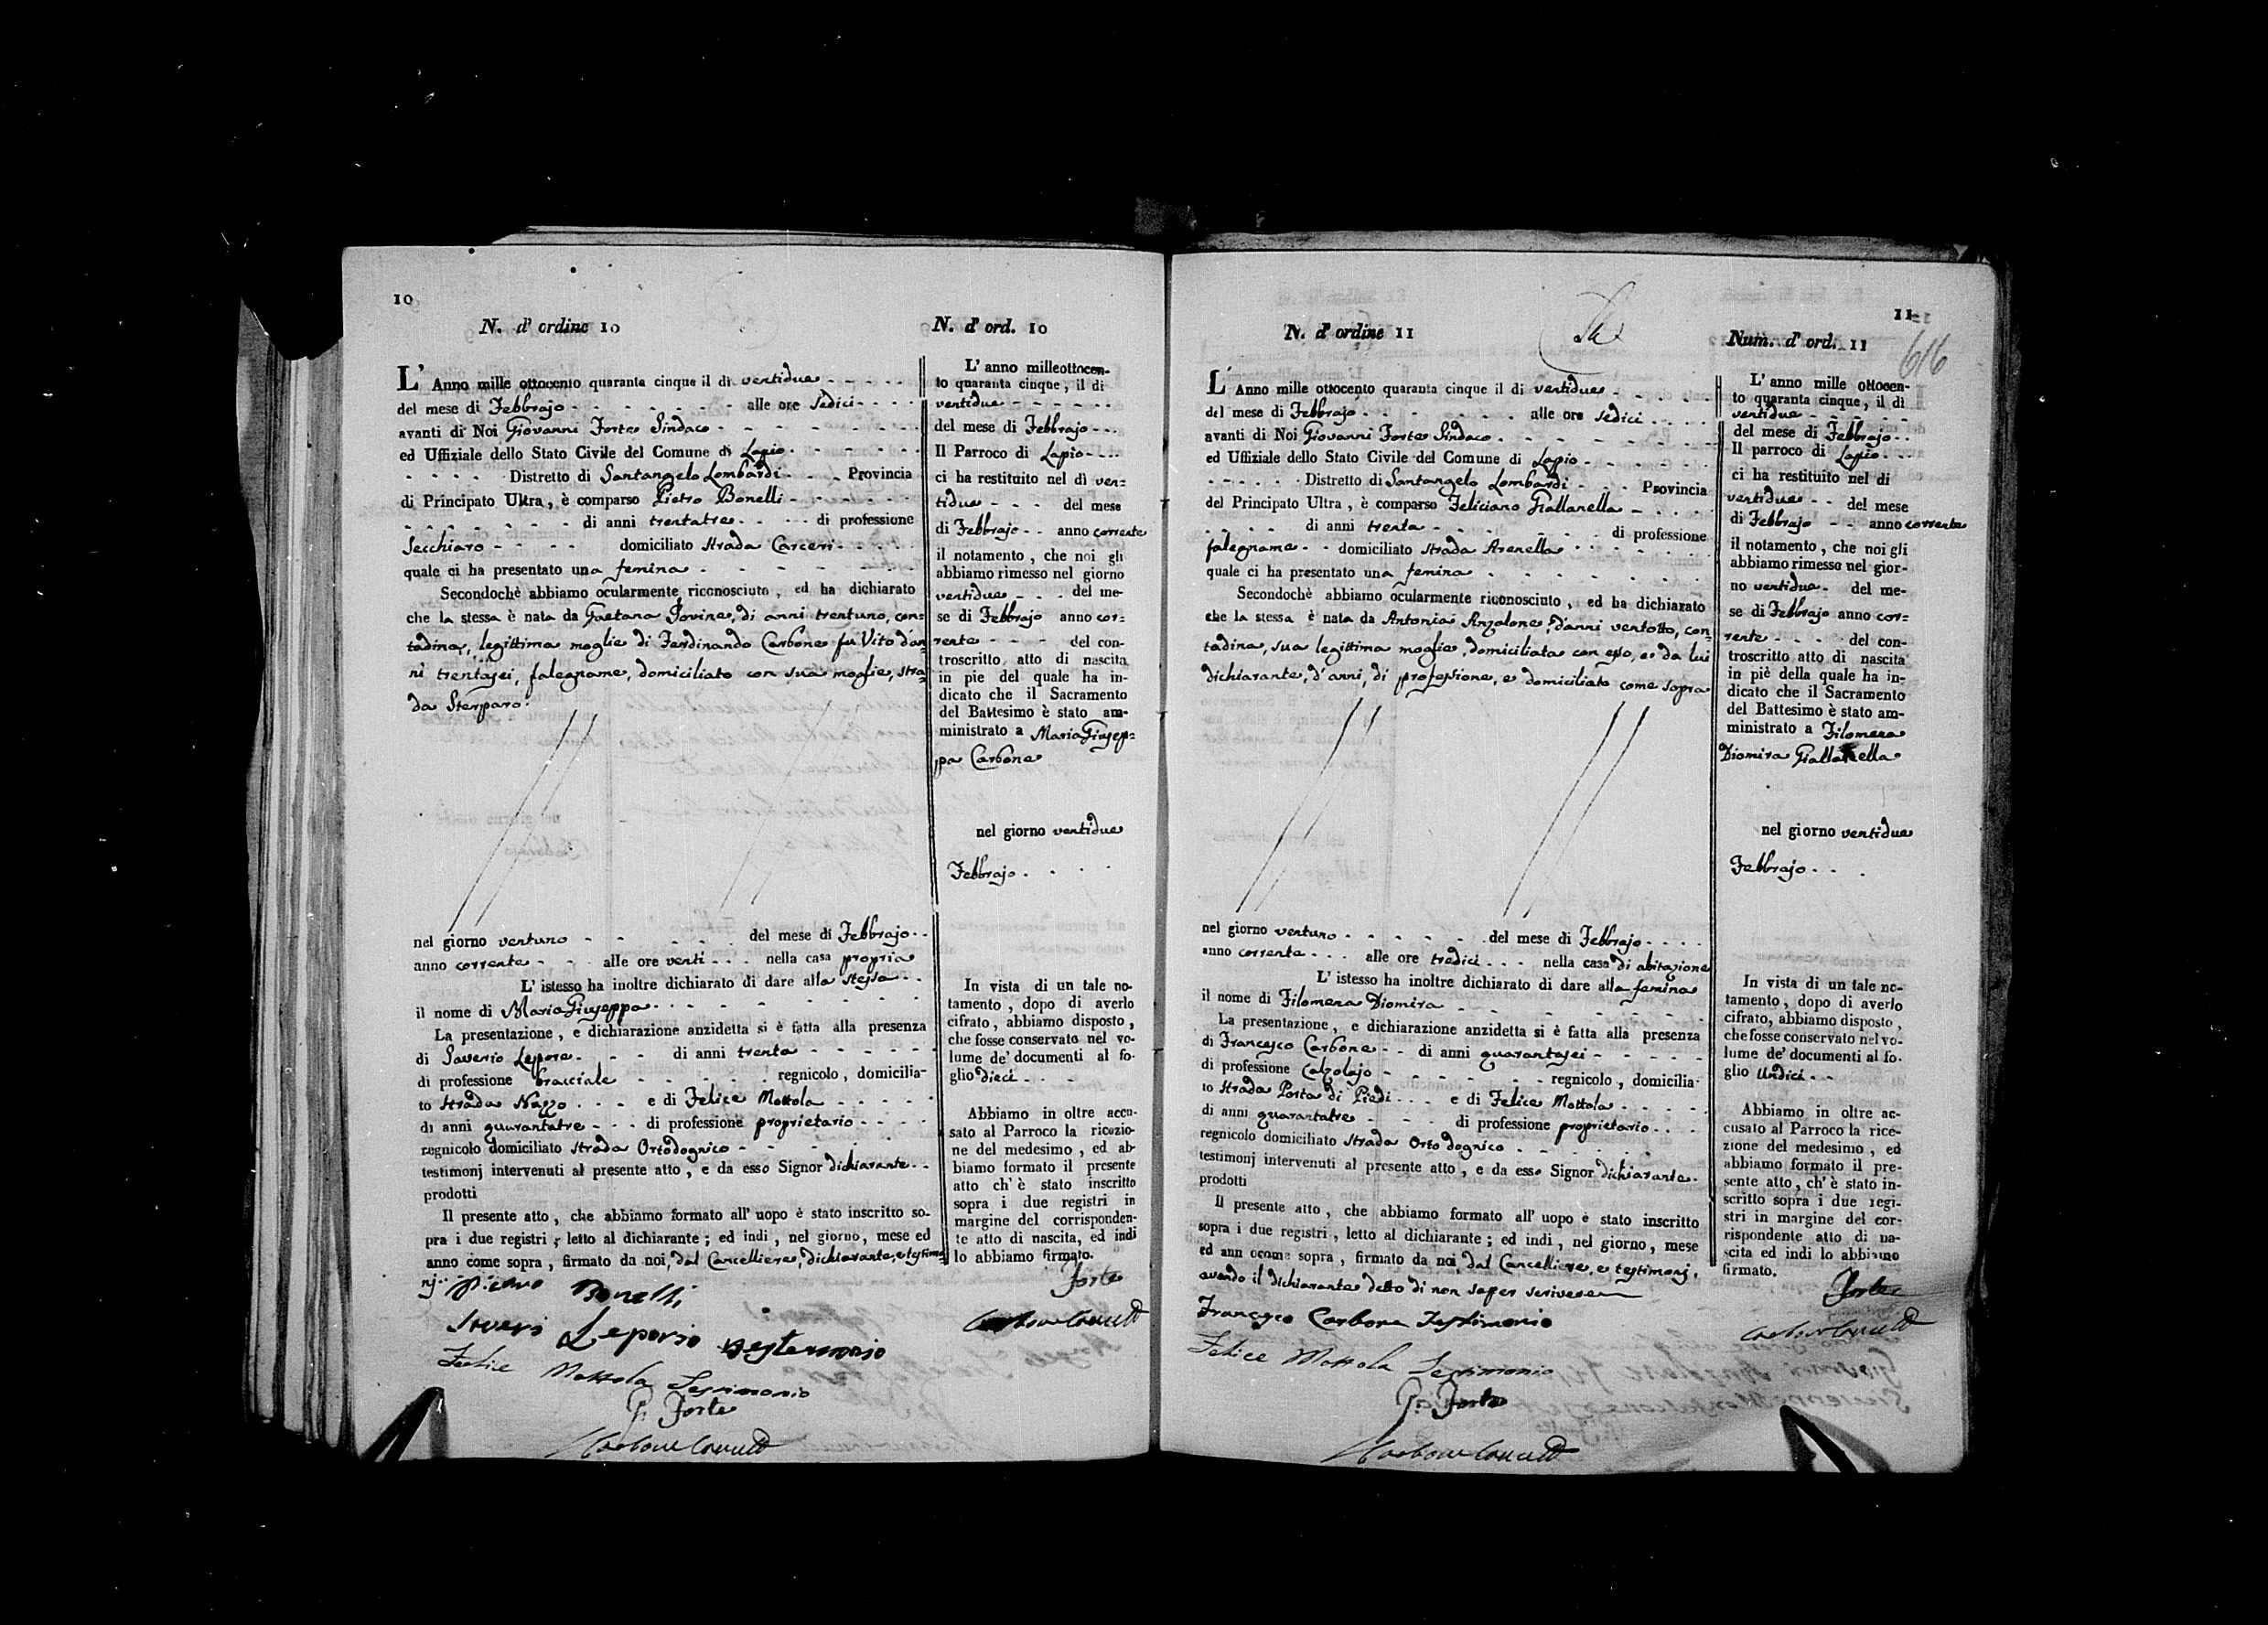 10
N. d' ordine 10
L' Anno mille ottocento quaranta cinque il dì ventidue
del mese di Febbrajo alle ore sedici
avanti di Noi Giovanni Forte Sindaco
ed Uffiziale dello Stato Civile del Comune di Lapio
Distretto di Santangelo Lombardi Provincia
di Principato Ultra, è comparso Pietro Bonelli
di anni trentatre di professione
Secchiaro domiciliato strada Carceri
quale ci ha presentato una femina
Secondochè abbiamo ocularmente riconosciuto, ed ha dichiarato
che la stessa è nata da Gaetana Iovine, di anni trentuno, con=
tadina, legittima moglie di Ferdinando Carbone fu Vito d'an=
ni trentasei, falegname, domiciliato con sua moglie, stra=
da Sterparo.
nel giorno ventuno del mese di Febbrajo
anno corrente alle ore venti nella casa propria
L' istesso ha inoltre dichiarato di dare alla stessa
il nome di Maria Giuseppa
La presentazione, e dichiarazione anzidetta si è fatta alla presenza
di Saverio Lepore di anni trenta
di professione bracciale regnicolo, domicilia-
to strada Nazzo e di Felice Mottola
di anni quarantatre di professione proprietario
regnicolo domiciliato strada Ortodognico
testimonj intervenuti al presente atto, e da esso Signor dichiarante
prodotti
Il presente atto, che abbiamo formato all' uopo è stato inscritto so-
pra i due registri, letto al dichiarante; ed indi, nel giorno, mese ed
anno come sopra, firmato da noi, dal Cancelliere, dichiarante, e testimo
nj. Bonelli
Leporio
Felice Mottola Testimonio
G. Forte
N. d' ord. 10
L' anno milleottocen-
to quaranta cinque, il dì
ventidue
del mese di Febbrajo
Il Parroco di Lapio
ci ha restituito nel dì ven=
tidue del mese
di Febbrajo anno corrente
il notamento, che noi gli
abbiamo rimesso nel giorno
ventidue del me-
se di Febbrajo anno cor=
rente del con-
troscritto atto di nascita
in pie del quale ha in-
dicato che il Sacramento
del Battesimo è stato am-
ministrato a Maria Giusep=
pa Carbone
nel giorno ventidue
Febbrajo
In vista di un tale no-
tamento, dopo di averlo
cifrato, abbiamo disposto,
che fosse conservato nel vo-
lume de' documenti al fo-
glio dieci
Abbiamo in oltre accu-
sato al Parroco la ricezio-
ne del medesimo, ed ab-
biamo formato il presente
atto ch' è stato inscritto
sopra i due registri in
margine del corrisponden-
te atto di nascita, ed indi
lo abbiamo firmato.
Forte
11
616
N. d' ordine 11
L' Anno mille ottocento quaranta cinque il di ventidue
del mese di Febbrajo alle ore sedici
avanti di Noi Giovanni Forte Sindaco
ed Uffiziale dello Stato Civile del Comune di Lapio
Distretto di Santangelo Lombardi Provincia
del Principato Ultra, è comparso Feliciano Giallanella
di anni trenta di professione
falegname domiciliato strada Arenella
quale ci ha presentato una femina
Secondochè abbiamo ocularmente riconosciuto, ed ha dichiarato
che la stessa è nata da Antonia Anzalone, d'anni ventotto, con=
tadina, sua legittima moglie, domiciliata con esso, e da lui
dichiarante, d'anni, di professione, e domiciliato come sopra
nel giorno ventuno del mese di Febbrajo
anno corrente alle ore tredici nella casa di abitazione
L' istesso ha inoltre dichiarato di dare alla femina
il nome di Filomena Diomira
La presentazione, e dichiarazione anzidetta si è fatta alla presenza
di Francesco Carbone di anni quarantasei
di professione Calzolajo regnicolo, domicilia-
to strada Porta di Piedi e di Felice Mottola
di anni quarantatre di professione proprietario
regnicolo domiciliato strada Ortodognico
testimonj intervenuti al presente atto, e da esso Signor dichiarante
prodotti
Il presente atto, che abbiamo formato all' uopo è stato inscritto
sopra i due registri, letto al dichiarante; ed indi, nel giorno, mese
ed ann ocome sopra, firmato da noi, dal Cancelliere, e testimonj,
avendo il dichiarante detto di non saper scrivere
Francesco Carbone Testimonio
Felice Mottola Testimonio
G. Forte
Num. d' ord. 11
L' anno mille ottocen-
to quaranta cinque, il dì
ventidue
del mese di Febbrajo
Il parroco di Lapio
ci ha restituito nel di
ventidue del mese
di Febbrajo anno corrente
il notamento, che noi gli
abbiamo rimesso nel gior-
no ventidue del me-
se di Febbrajo anno cor=
rente del con-
troscritto atto di nascita
in piè della quale ha in-
dicato che il Sacramento
del Battesimo è stato am-
ministrato a Filomena
Diomira Giallanella
nel giorno ventidue
Febbrajo
In vista di un tale no-
tamento, dopo di averlo
cifrato, abbiamo disposto,
che fosse conservato nel vo-
lume de' documenti al fo-
glio Undici
Abbiamo in oltre ac-
cusato al Parroco la rice-
zione del medesimo, ed
abbiamo formato il pre-
sente atto, ch' è stato in-
scritto sopra i due regi-
stri in margine del cor-
rispondente atto di na-
scita ed indi lo abbiamo
firmato.
Forte